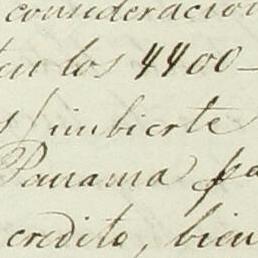 consideracion
en los 4400-
imbierte
Panama pa
credito, bien